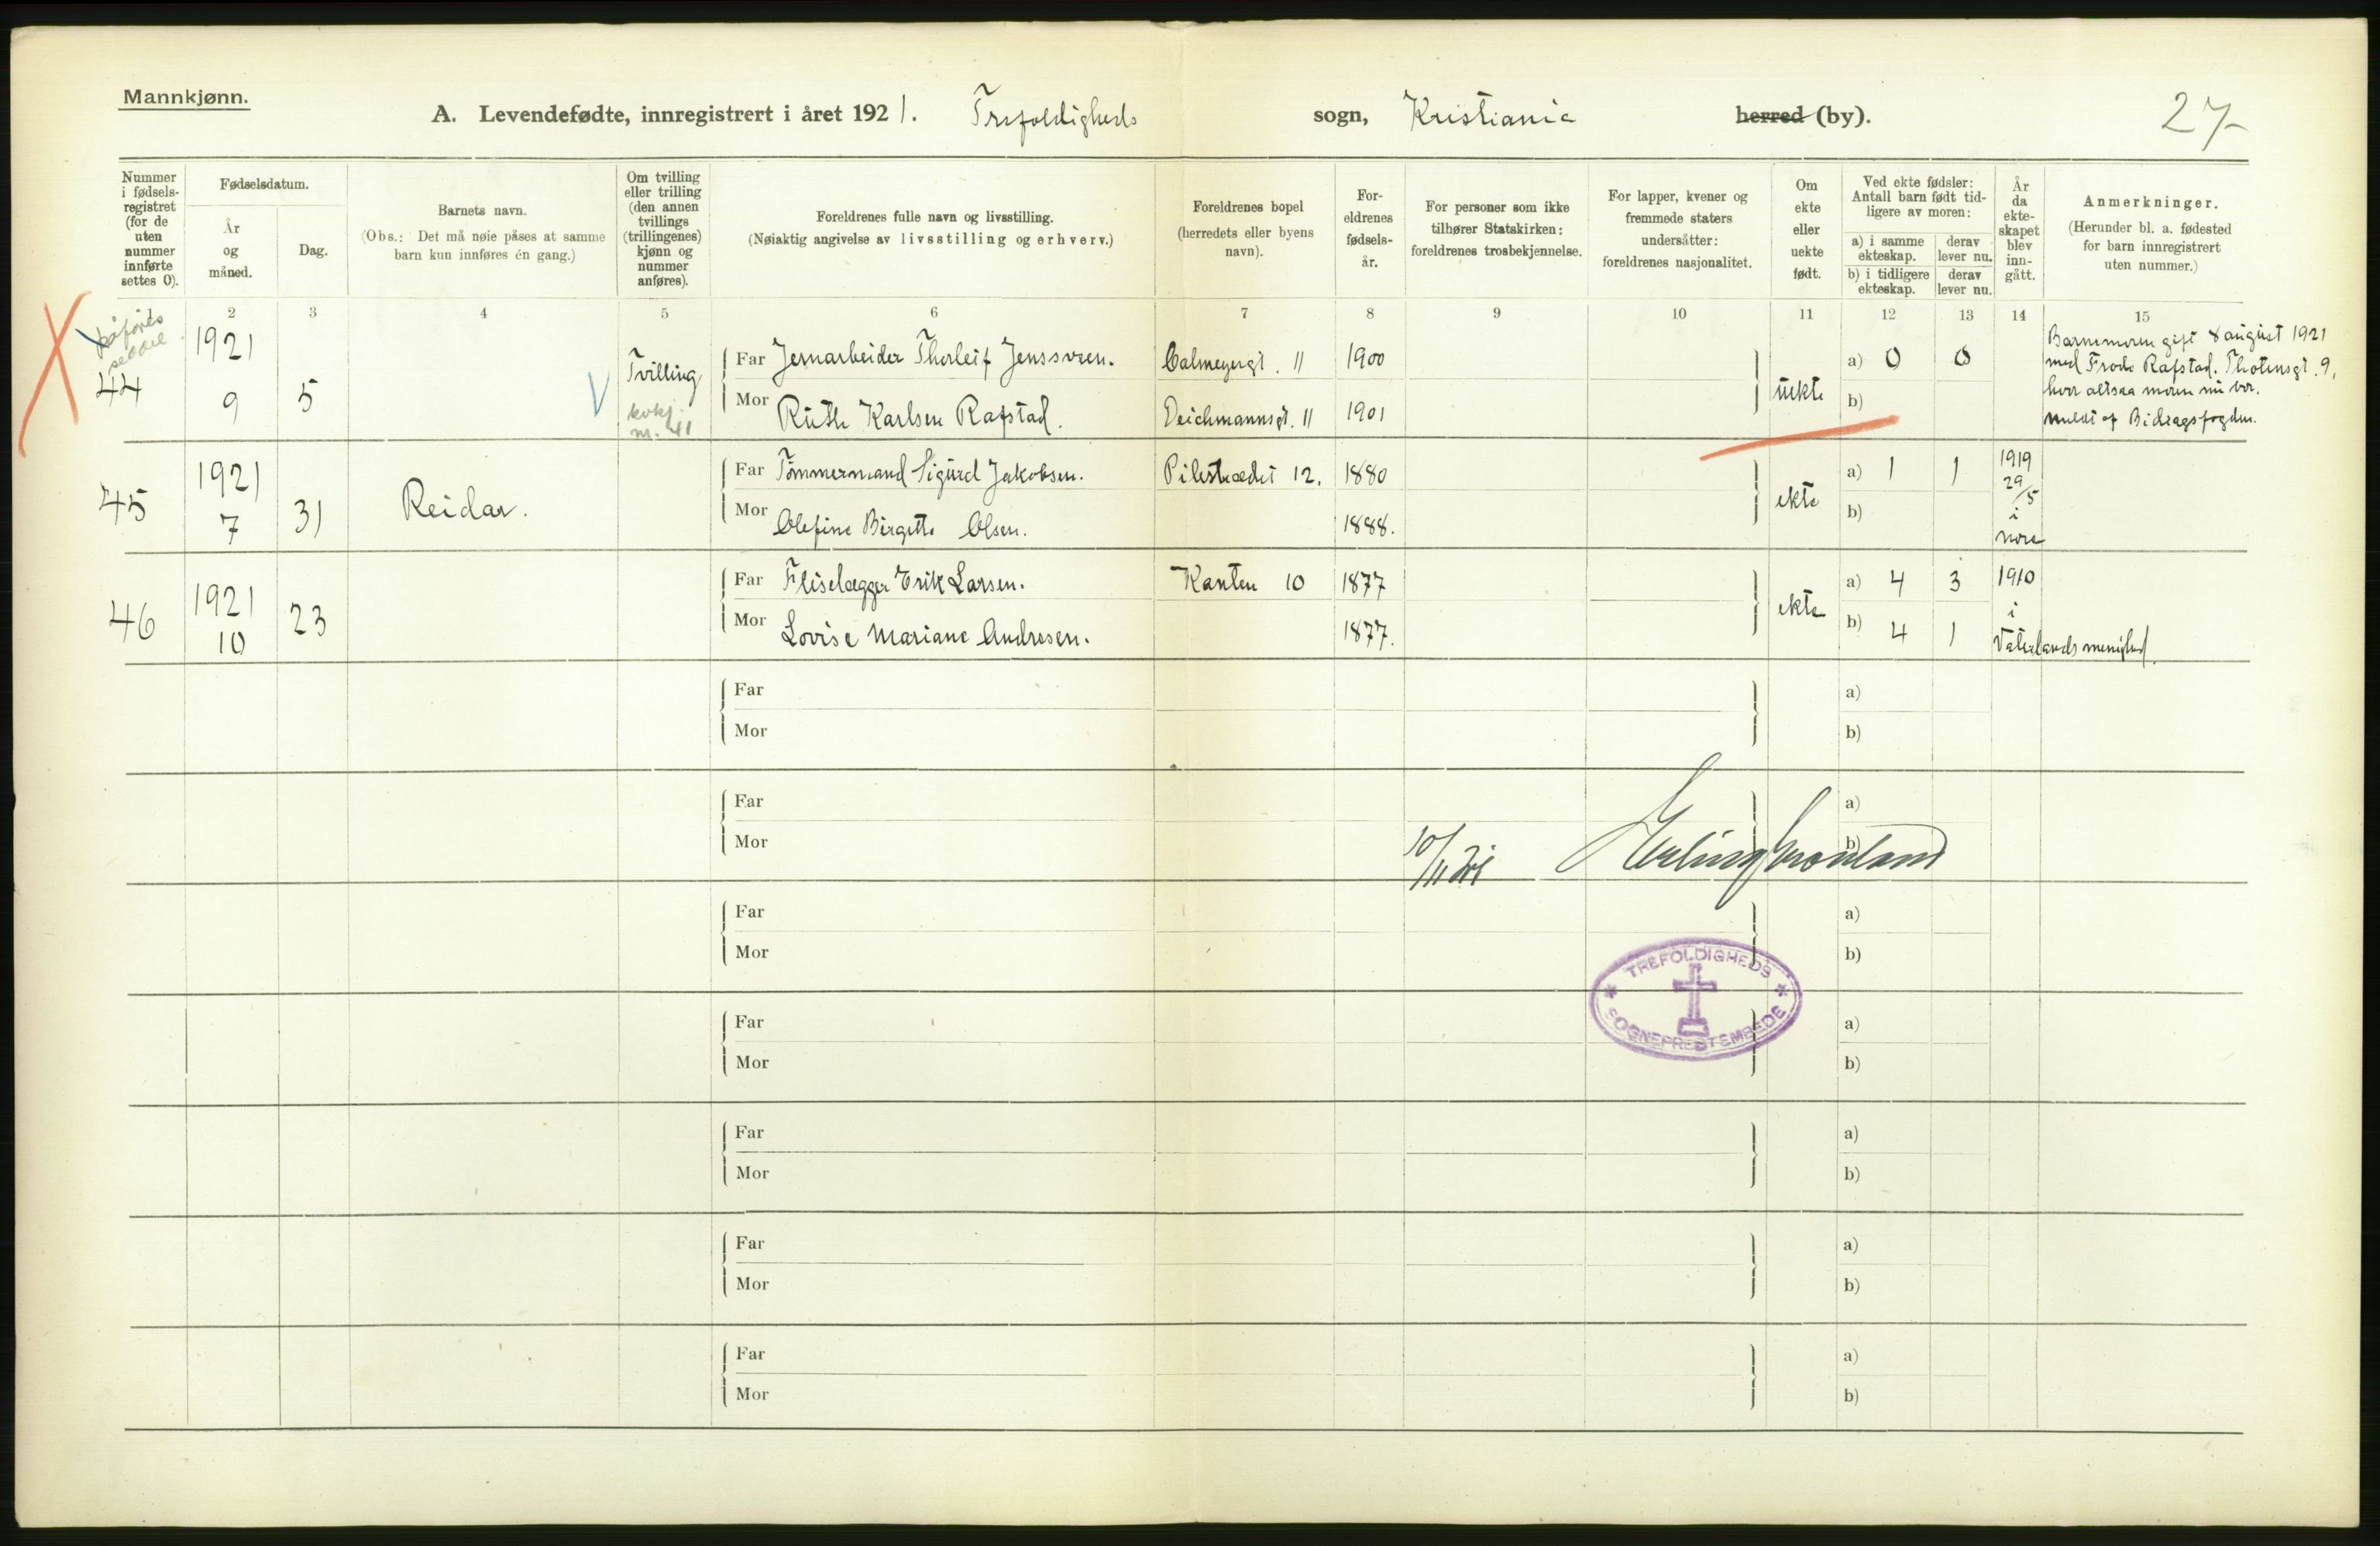 Mannkjønn.
A. Levendefødte, innregistrert i året 1921. Trefoldigheds sogn, Kristiania herred (by). 27
Nummer i fødsels-registret (for de uten nummer innførte settes 0).
Fødselsdatum.
År og måned.
Dag.
Barnets navn.
(Obs.: Det må nøie påses at samme barn kun innføres én gang.)
Om tvilling eller trilling (den annen tvillings (trillingenes) kjønn og nummer anføres).
Foreldrenes fulle navn og livsstilling.
(Nøiaktig angivelse av livsstilling og erhverv.)
Foreldrenes bopel (herredets eller byens navn).
For-eldrenes fødsels-år.
For personer som ikke tilhører Statskirken: foreldrenes trosbekjennelse.
For lapper, kvener og fremmede staters undersåtter: foreldrenes nasjonalitet.
Om ekte eller uekte født.
Ved ekte fødsler: Antall barn født tid-ligere av moren:
a) i samme ekteskap. derav lever nu.
b) i tidligere ekteskap. derav lever nu.
År da ekte-skapet blev inn-gått.
Anmerkninger.
(Herunder bl. a. fødested for barn innregistrert uten nummer.)
2 3 4 5 6 7 8 9 10 11 12 13 14 15
påføres seddel
44 1921 9 5 Tvilling kvkj. nr. 41
Far Jernarbeider Thorleif Jenssveen. Calmeyergt. 11 1900
Mor Ruth Karlsen Rafstad. Deichmannsgt. 11 1901
uekte a) 0 0 b)
Barnemoren gift 8 august 1921
med Frode Rafstad. Thotensgt. 9,
hvor altsaa moren nu bor.
meldt af Bidragsfogden.
45 1921 7 31 Reidar.
Far Tømmermand Sigurd Jakobsen. Pilestrædet 12. 1880
Mor Olefine Birgitte Olsen. 1888.
ekte a) 1 1 b)
1919 29/5 i
46 1921 10 23
Far Fliselægger Erik Larsen. Kanten 10 1877
Mor Lovise Mariane Andresen. 1877.
ekte a) 4 3 b) 4 1
1910 i Vaterlands menighed
Far a)
Mor b)
Far a)
Mor b)
10/11 21 Erling Grønland
Far a)
Mor b)
TREFOLDIGHEDS
SOGNEPRESTEMBEDE
Far a)
Mor b)
Far a)
Mor b)
Far a)
Mor b)
Far a)
Mor b)